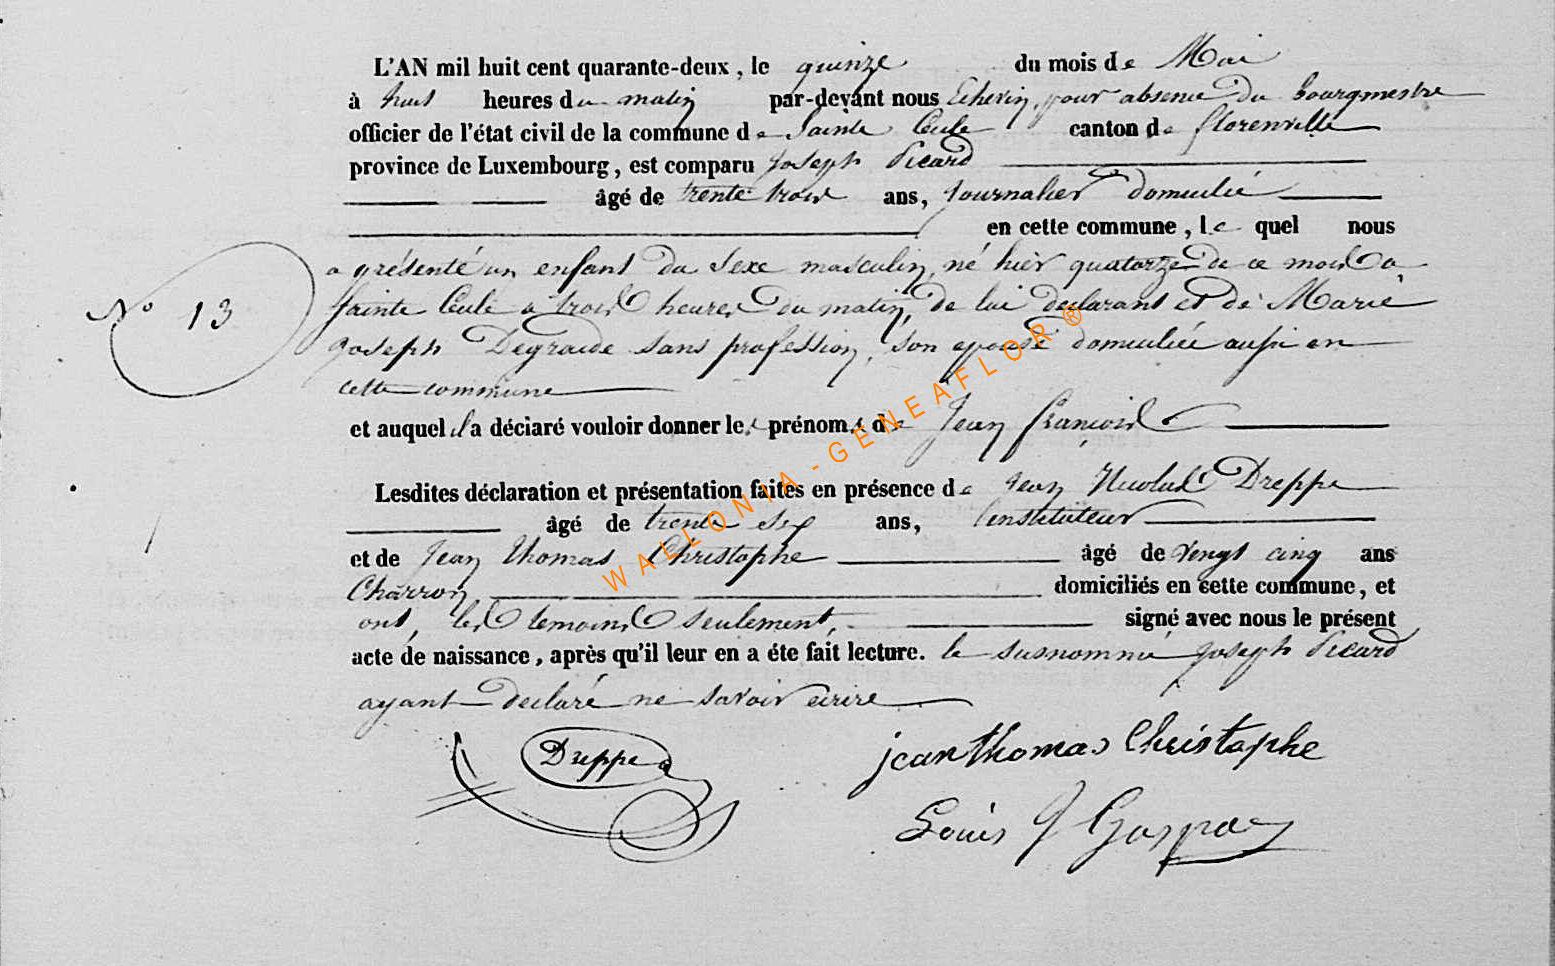 L'AN mil huit cent quarante-deux, le quinze du mois de Mai
à huit heures du matin par-devant nous Echevin, pour absence du bourgmestre
officier de l'état civil de la commune de Sainte Cécile canton de florenville
province de Luxembourg, est comparu Joseph Picard
âgé de trente trois ans, journalier domicilié
en cette commune, le quel nous
a présenté un enfant du sexe masculin, né hier quatorze de ce mois à
N° 13
Sainte Cécile à trois heures du matin, de lui déclarant et de Marie
Joseph Degraide sans profession, son épouse domiciliée aussi en
cette commune
et auquel il a déclaré vouloir donner les prénoms de Jean françois
Lesdites déclaration et présentation faites en présence de Jean Nicolas Dreppe
âgé de trente six ans, instituteur
et de Jean Thomas Christophe âgé de vingt cinq ans
Charron, domiciliés en cette commune, et
ont, les temoins seulement, signé avec nous le présent
acte de naissance, après qu'il leur en a éte fait lecture. le susnommé Joseph Picard
ayant declaré ne savoir écrire
Dreppe
jean thomas Christophe
Louis J Gaspar
WALLONIA-GENEAFLOR®